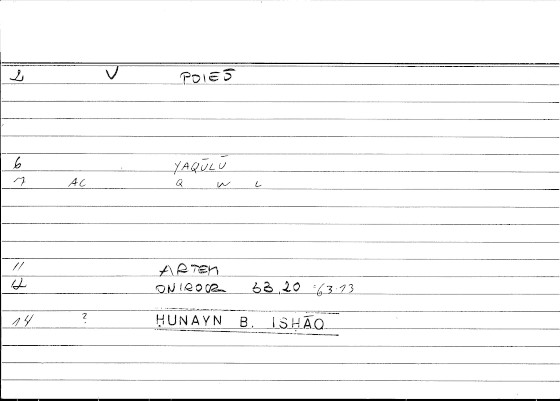 2 V POIEŌ
6 YAQŪLŪ
7 AC Q W L
11 ARTEM
12 ONIROCR 63,20 :63.13
14 ? ḤUNAYN B. ISḤĀQ